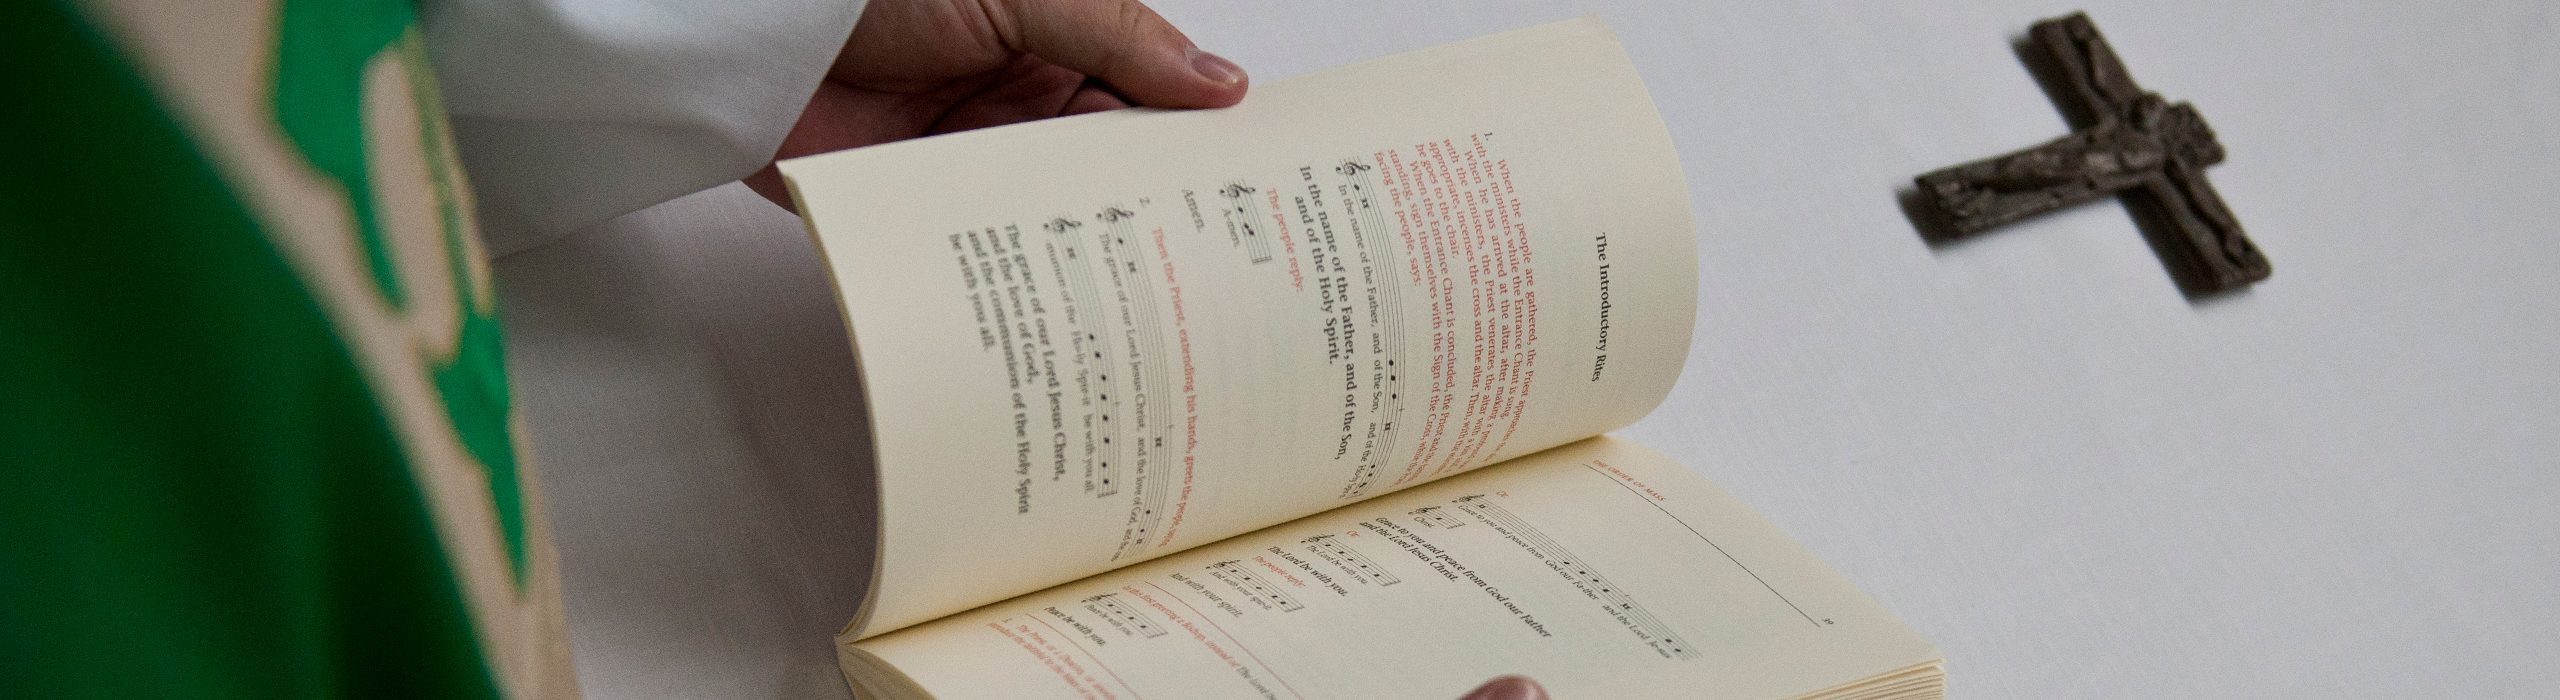 The Introductory Rites
1. When the people are gathered, the Priest
with the ministers while the Entrance Chant is sung.
When he has arrived at the altar, after making a
with the ministers, the Priest venerates the altar with a
appropriate, incenses the cross and the altar. Then, with the
he goes to the chair.
When the Entrance Chant is concluded, the Priest and the
standing, sign themselves with the Sign of the Cross, while the
facing the people, says:
In the name of the Father, and of the Son, and of the Ho-ly
In the name of the Father, and of the Son,
and of the Holy Spirit.
The people reply:
A-men.
Amen.
2. Then the Priest, extending his hands, greets the people, saying
The grace of our Lord Jesus Christ, and the love of God, and the com-
munion of the Ho-ly Spir-it be with you all.
The grace of our Lord Jesus Christ,
and the love of God,
and the communion of the Holy Spirit
be with you all.
THE ORDER OF MASS
39
Or:
Grace to you and peace from God our Fa-ther and the Lord Je-sus
Christ.
Grace to you and peace from God our Father
and the Lord Jesus Christ.
Or:
The Lord be with you.
The Lord be with you.
The people reply:
And with your spir-it.
And with your spirit.
In this first greeting a Bishop, instead of The Lord be
Peace be with you.
Peace be with you.
3. The Priest, or a Deacon, or another